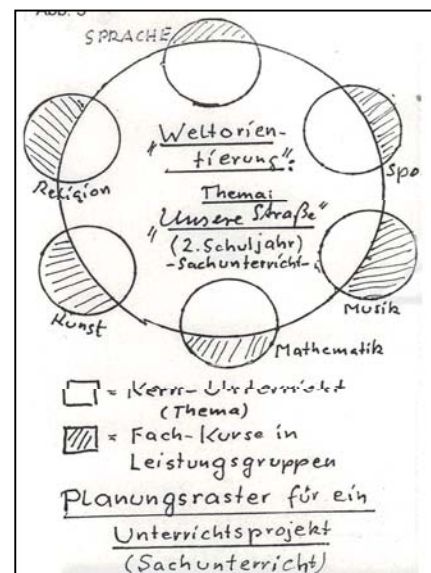 SPRACHE
Religion
Kunst
Mathematik
Musik
Spo
"Weltorien-
tierung":
Thema:
"Unsere Straße"
(2. Schuljahr)
-Sachunterricht-
= Kern-Unterricht
(Thema)
= Fach-Kurse in
Leistungsgruppen
Planungsraster für ein
Unterrichtsprojekt
(Sachunterricht)